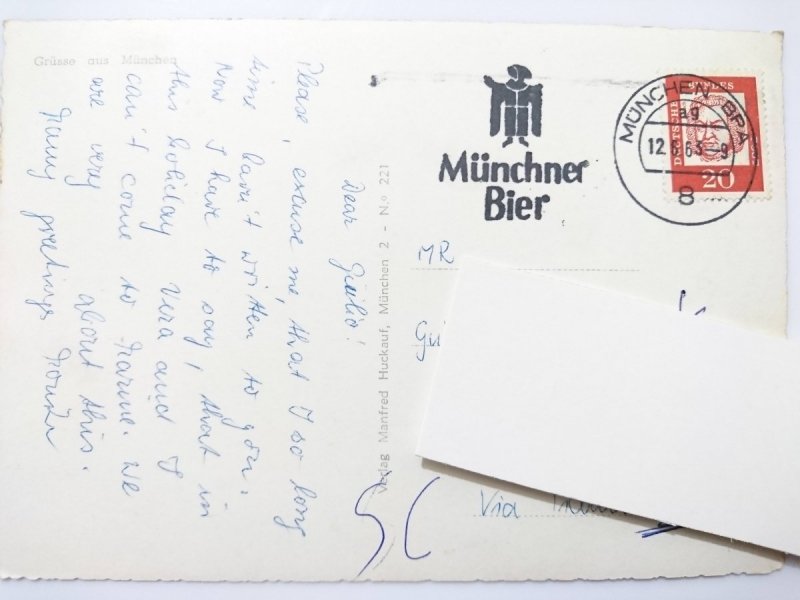 Grüsse aus München
Dear Giulio!
Please, excuse me, that I so long
time havn't written to you.
Now I have to say, that in
this holiday Vera and I
can't come to Marine. We
are very
about this.
Many greetings
Verlag Manfred Huckauf, München 2 - N.o 221
Münchner
Bier
MÜNCHEN BPA
ag
12.6.63-9
8
DEUTSCHE BUNDES
20
MR
Gi
Via